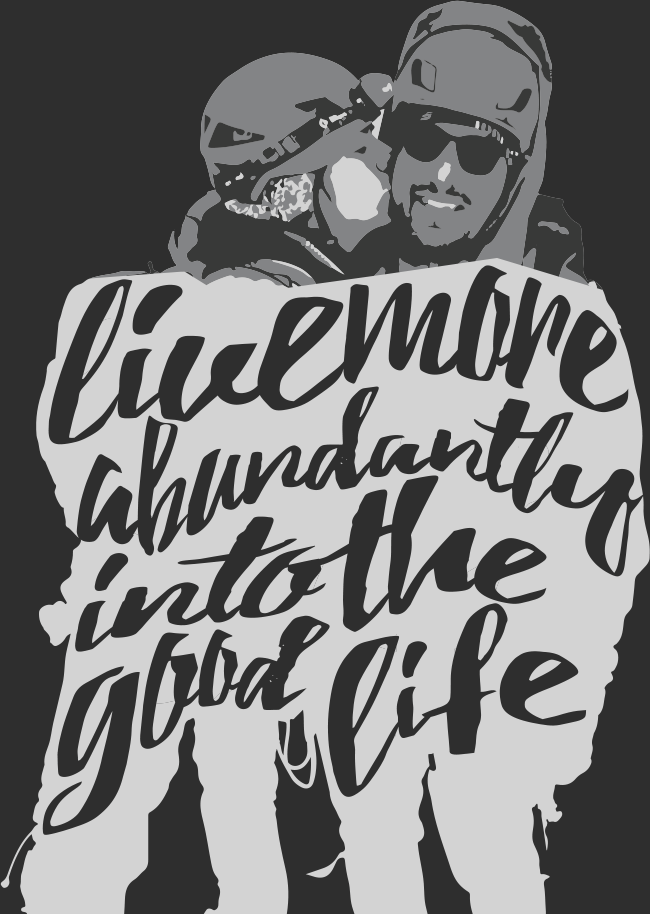 live more
abundantly
into the
good life